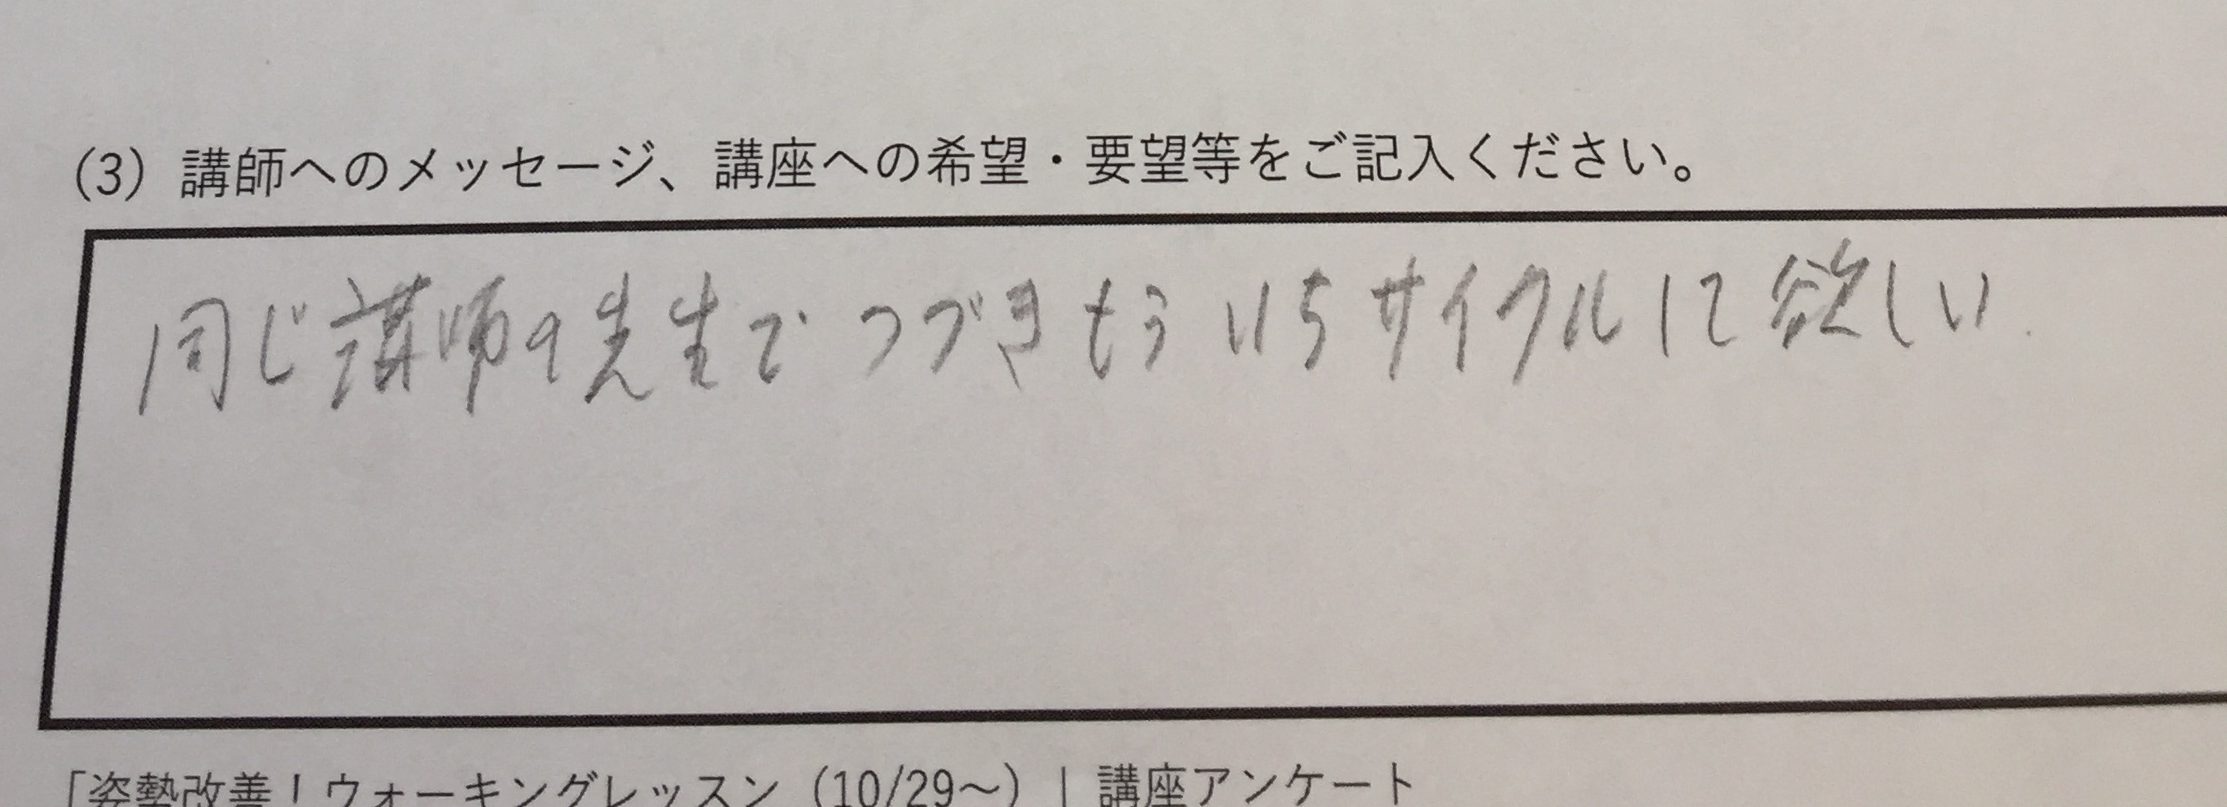 (3) 講師へのメッセージ、講座への希望・要望等をご記入ください。
同じ講師の先生でつづきもういちサイクルして欲しい.
「姿勢改善！ウォーキングレッスン（10/29～）」講座アンケート